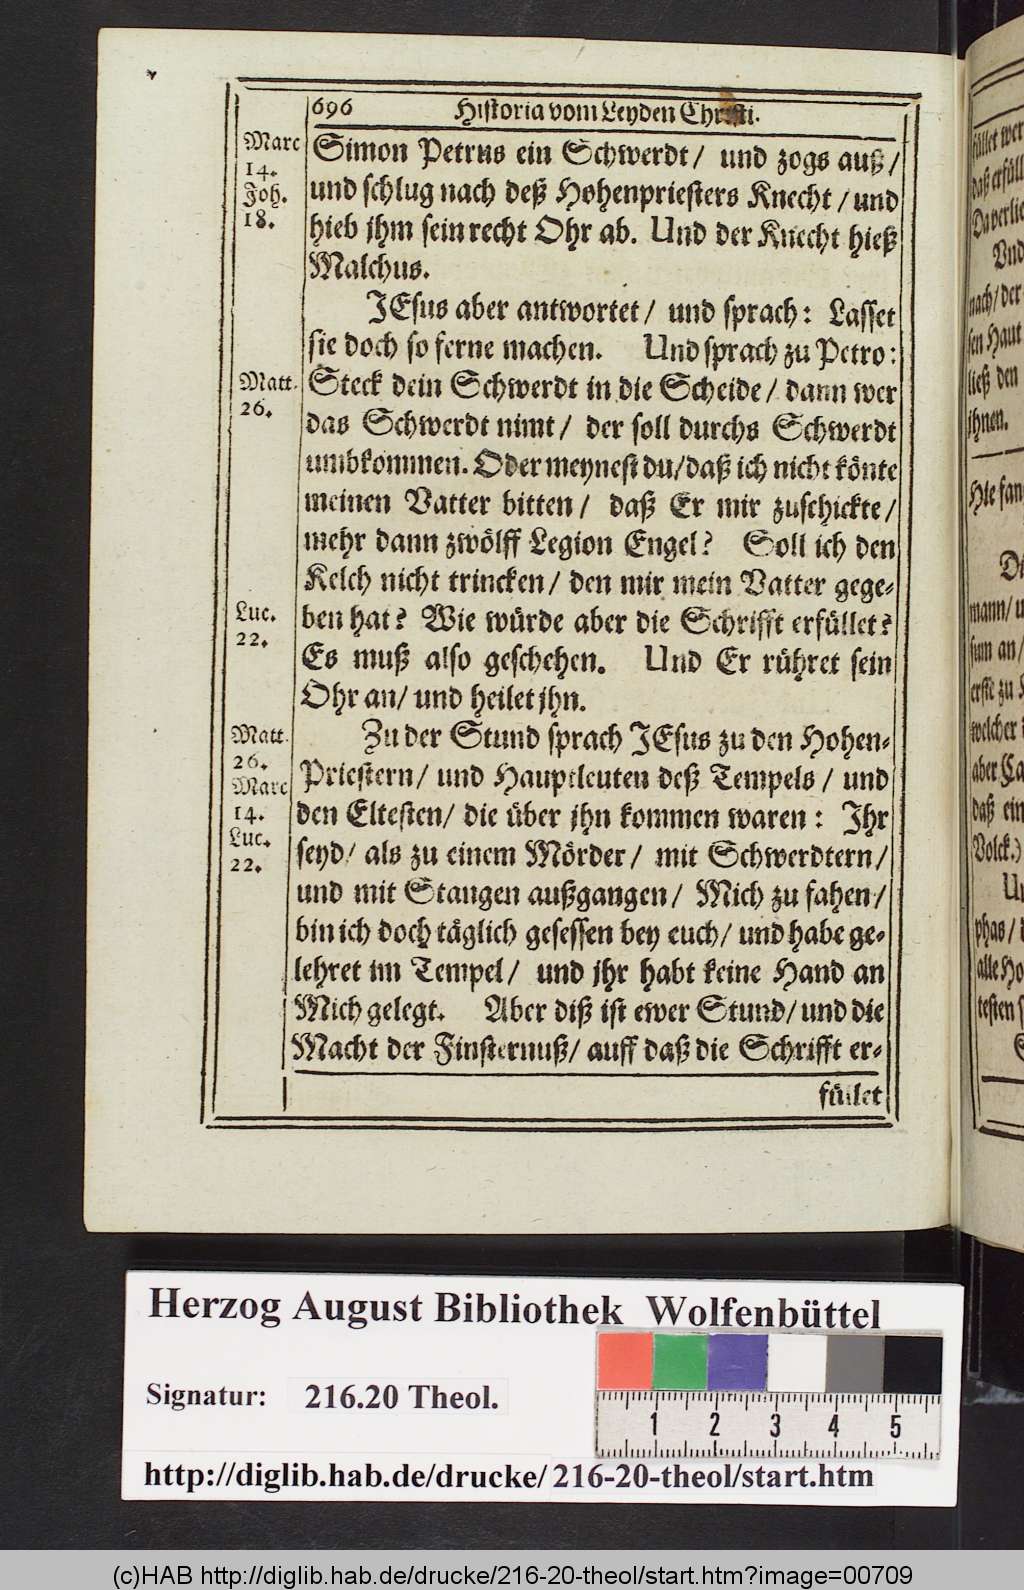 696 Historia vom Leyden Christi.
Marc
14.
Joh.
18.
Simon Petrus ein Schwerdt/ und zogs auß/
und schlug nach deß Hohenpriesters Knecht / und
hieb jhm sein recht Ohr ab. Und der Knecht hieß
Malchus.
JEsus aber antwortet/ und sprach: Lasset
sie doch so ferne machen. Und sprach zu Petro:
Matt.
26.
Steck dein Schwerdt in die Scheide/ dann wer
das Schwerdt nimt/ der soll durchs Schwerdt
umbkommen. Oder meynest du/ daß ich nicht könte
meinen Vatter bitten/ daß Er mir zuschickte/
mehr dann zwölff Legion Engel? Soll ich den
Kelch nicht trincken/ den mir mein Vatter gege-
Luc.
22.
ben hat? Wie würde aber die Schrifft erfüllet?
Es muß also geschehen. Und Er rühret sein
Ohr an/ und heilet jhn.
Matt.
26.
Marc
14.
Luc.
22.
Zu der Stund sprach JEsus zu den Hohen-
Priestern/ und Hauptleuten deß Tempels / und
den Eltesten/ die über jhn kommen waren: Jhr
seyd/ als zu einem Mörder/ mit Schwerdtern/
und mit Stangen außgangen/ Mich zu fahen/
bin ich doch täglich gesessen bey euch/ und habe ge-
lehret im Tempel/ und jhr habt keine Hand an
Mich gelegt. Aber diß ist ewer Stund/ und die
Macht der Finsternuß/ auff daß die Schrifft er-
füllet
füllet wer
daß erfüll
Da verlie
Und
nach/ der
sen Haut
ließ den
jhnen.
Hie fan
mann/ u
sum an/
erste zu
welcher
aber Ca
daß ein
Volck.)
phas/
alle Ho
testen
Herzog August Bibliothek Wolfenbüttel
Signatur: 216.20 Theol.
1 2 3 4 5
http://diglib.hab.de/drucke/ 216-20-theol/start.htm
(c)HAB http://diglib.hab.de/drucke/216-20-theol/start.htm?image=00709